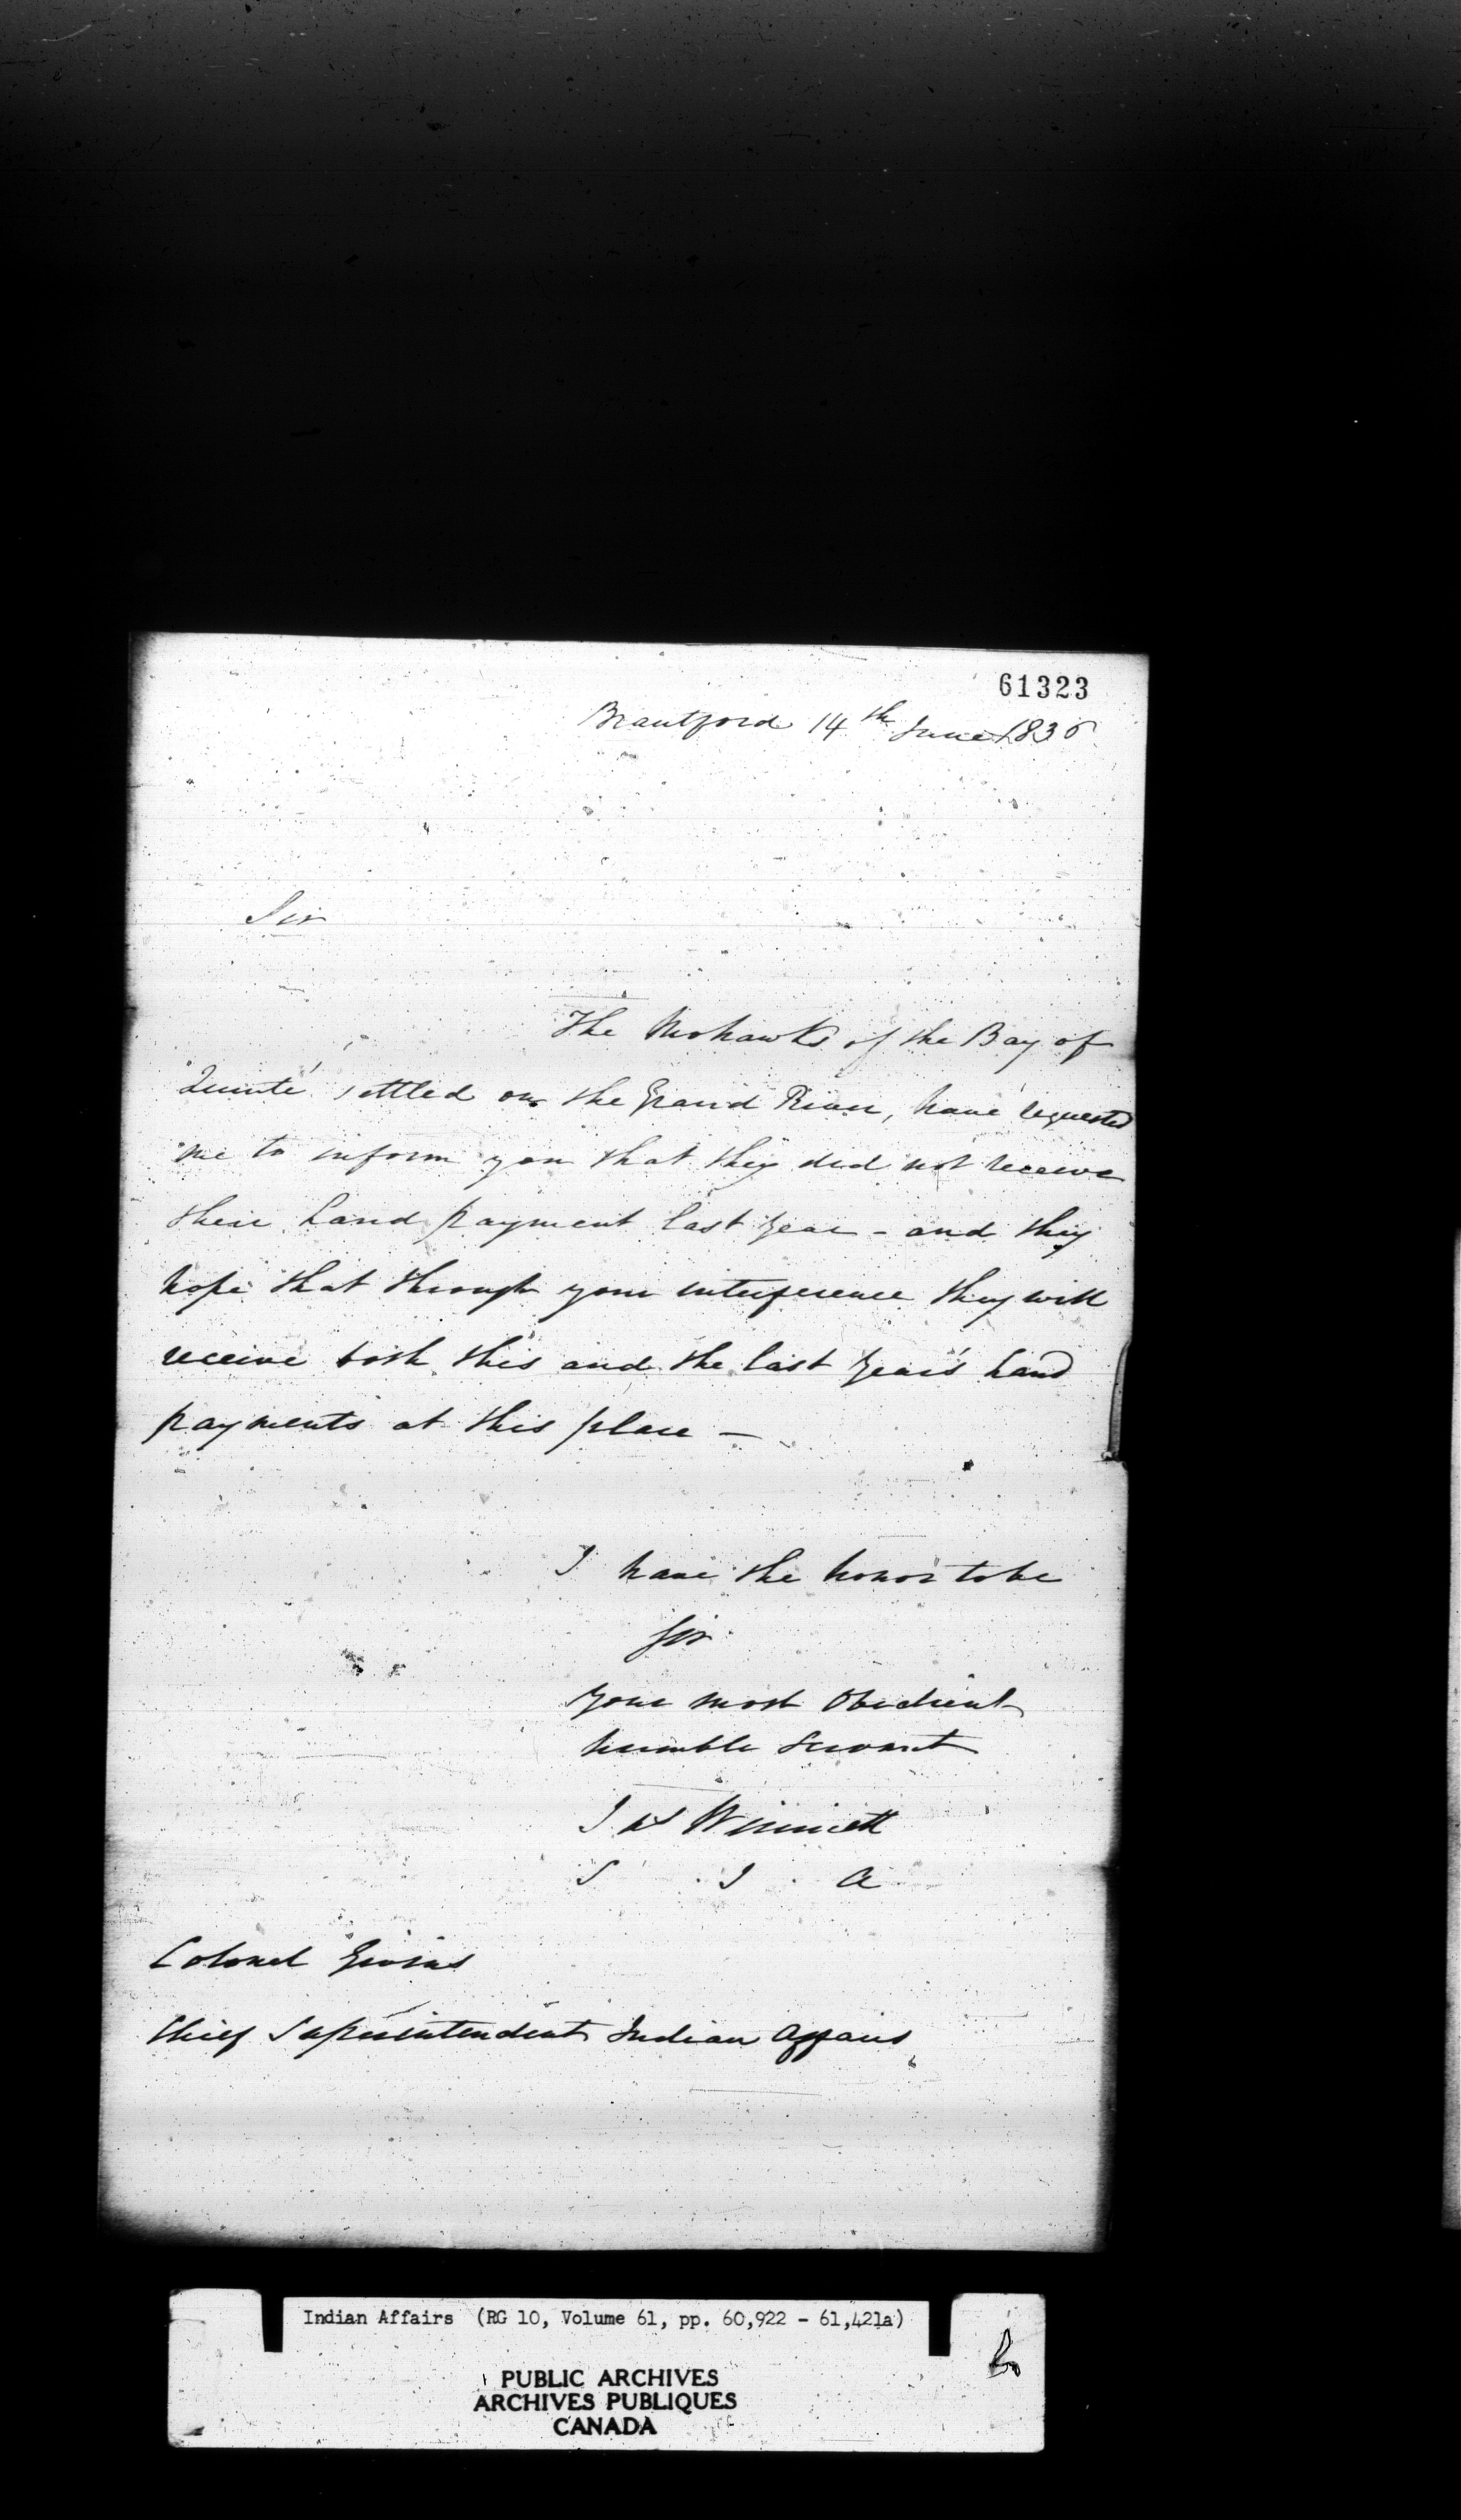 61323
Brantford 14th June 1836
Sir
The Mohawks of the Bay of
Quinté settled on the Grand River, have requested
me to inform you that they did not receive
their Land payment last year - and they
hope that through your interference they will
receive both this and the last Year's Land
payments at this place —
I have the honor to be
Sir
Your most Obedient
humble Servant
Winniett
S I A
Colonel Givins
Chief Superintendent Indian Affairs
Indian Affairs (RG 10, Volume 61, pp. 60,922 - 61,421a)
PUBLIC ARCHIVES
ARCHIVES PUBLIQUES
CANADA